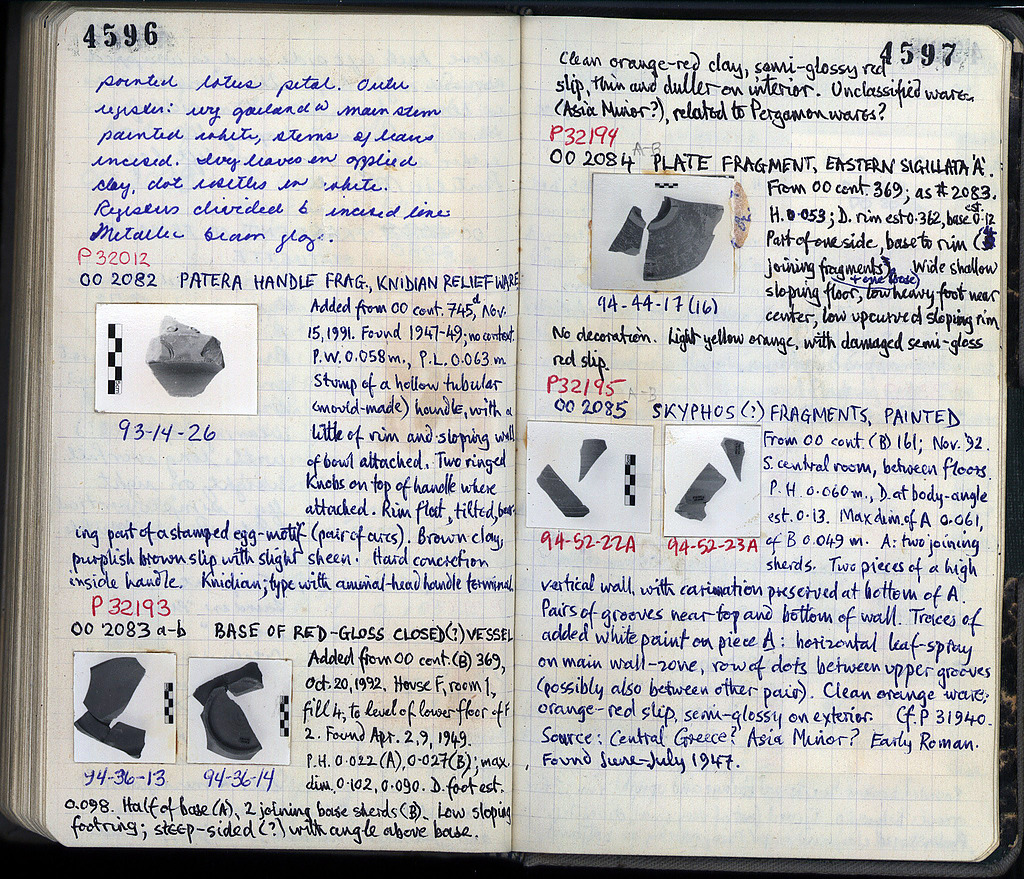 4596
pointed lotus petal. Outer
register: ivy garland w main stem
painted white, stems of leaves
incised. Ivy leaves in applied
clay, dot rosettes in white.
Registers divided by incised line
Metallic brown glaze.
P 32012
OO 2082 PATERA HANDLE FRAG., KNIDIAN RELIEF WARE
Added from OO cont. 745, Nov.
15, 1991. Found 1947-49; no context.
P.W. 0.058 m., P.L. 0.063 m
Stump of a hollow tubular
(mould-made) handle, with a
little of rim and sloping wall
of bowl attached. Two ringed
Knobs on top of handle where
attached. Rim flat, tilted, bear-
93-14-26
ing part of a stamped egg-motif (pair of arcs). Brown clay,
purplish brown slip with slight sheen. Hard concretion
inside handle. Knidian; type with animal-head handle terminal.
P 32193
OO 2083 a-b BASE OF RED-GLOSS CLOSED(?) VESSEL
Added from OO cont. (B) 369,
Oct. 20, 1992. House F, room 1,
fill 4, to level of lower floor of F
2. Found Apr. 2, 9, 1949.
P.H. 0.022 (A), 0.027 (B); max.
dim. 0.102, 0.090. D. foot est.
94-36-13 94-36-14
0.098. Half of base (A), 2 joining base sherds (B). Low sloping
footring; steep-sided (?) with angle above base.
4597
Clean orange-red clay, semi-glossy red
slip, thin and duller on interior. Unclassified ware
(Asia Minor?), related to Pergamon wares?
P32194
A-B
OO 2084 PLATE FRAGMENT, EASTERN SIGILLATA 'A'.
From OO cont. 369; as # 2083.
H. 0.053; D. rim est 0.362, base est. 0.12
Part of one side, base to rim (
joining fragments + one loose). Wide shallow
sloping floor, low heavy foot near
center, low upcurved sloping rim
94-44-17 (16)
No decoration. Light yellow orange, with damaged semi-gloss
red slip.
P32195
A-B
OO 2085 SKYPHOS (?) FRAGMENTS, PAINTED
From OO cont. (B) 161; Nov. '92.
S. central room, between floors.
P.H. 0.060 m., D. at body-angle
est. 0.13. Max dim. of A 0.061,
of B 0.049 m. A: two joining
sherds. Two pieces of a high
94-52-22A 94-52-23A
vertical wall, with carination preserved at bottom of A.
Pairs of grooves near top and bottom of wall. Traces of
added white paint on piece A: horizontal leaf-spray
on main wall-zone, row of dots between upper grooves
(possibly also between other pair). Clean orange ware;
orange-red slip, semi-glossy on exterior Cf. P 31940.
Source: Central Greece? Asia Minor? Early Roman.
Found June-July 1947.